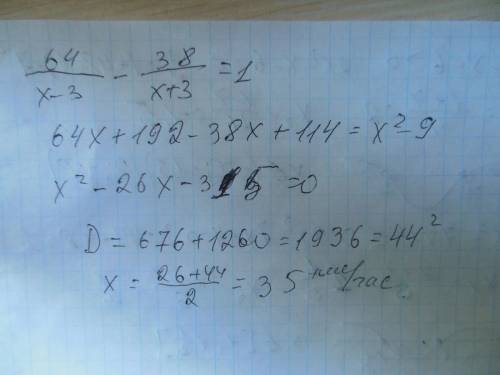 64/(x-3) - 38/(x+3) = 1
64x+192-38x+114 = x²-9
x²-26x-315=0
D = 676+1260=1936=44²
x = (26+44)/2 = 35 км/час